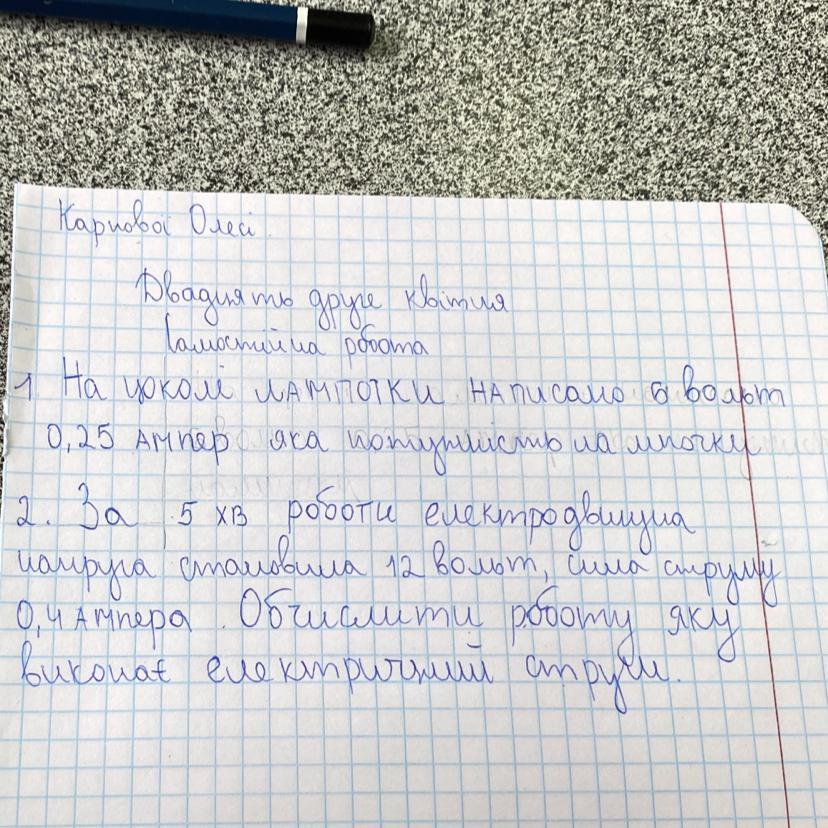 Карпової Олесі
Двадцять друге квітня
Самостійна робота
1 На цоколі лампотки написано 6 вольт
0,25 ампер яка потужність на мпочки
2. За 5 хв роботи електродвигуна
напруга становила 12 вольт, сила струму
0,4 Ампера. Обчислити роботу яку
виконає електричний струм.